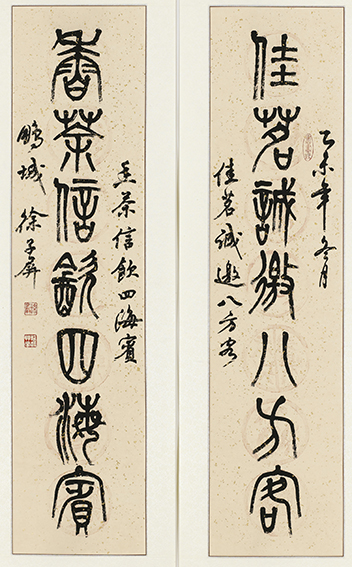 佳茗誠邀八方客
乙未年冬月
佳茗诚邀八方客
香茶信飲四海賓
香茶信飲四海賓
鵬城 徐子屏